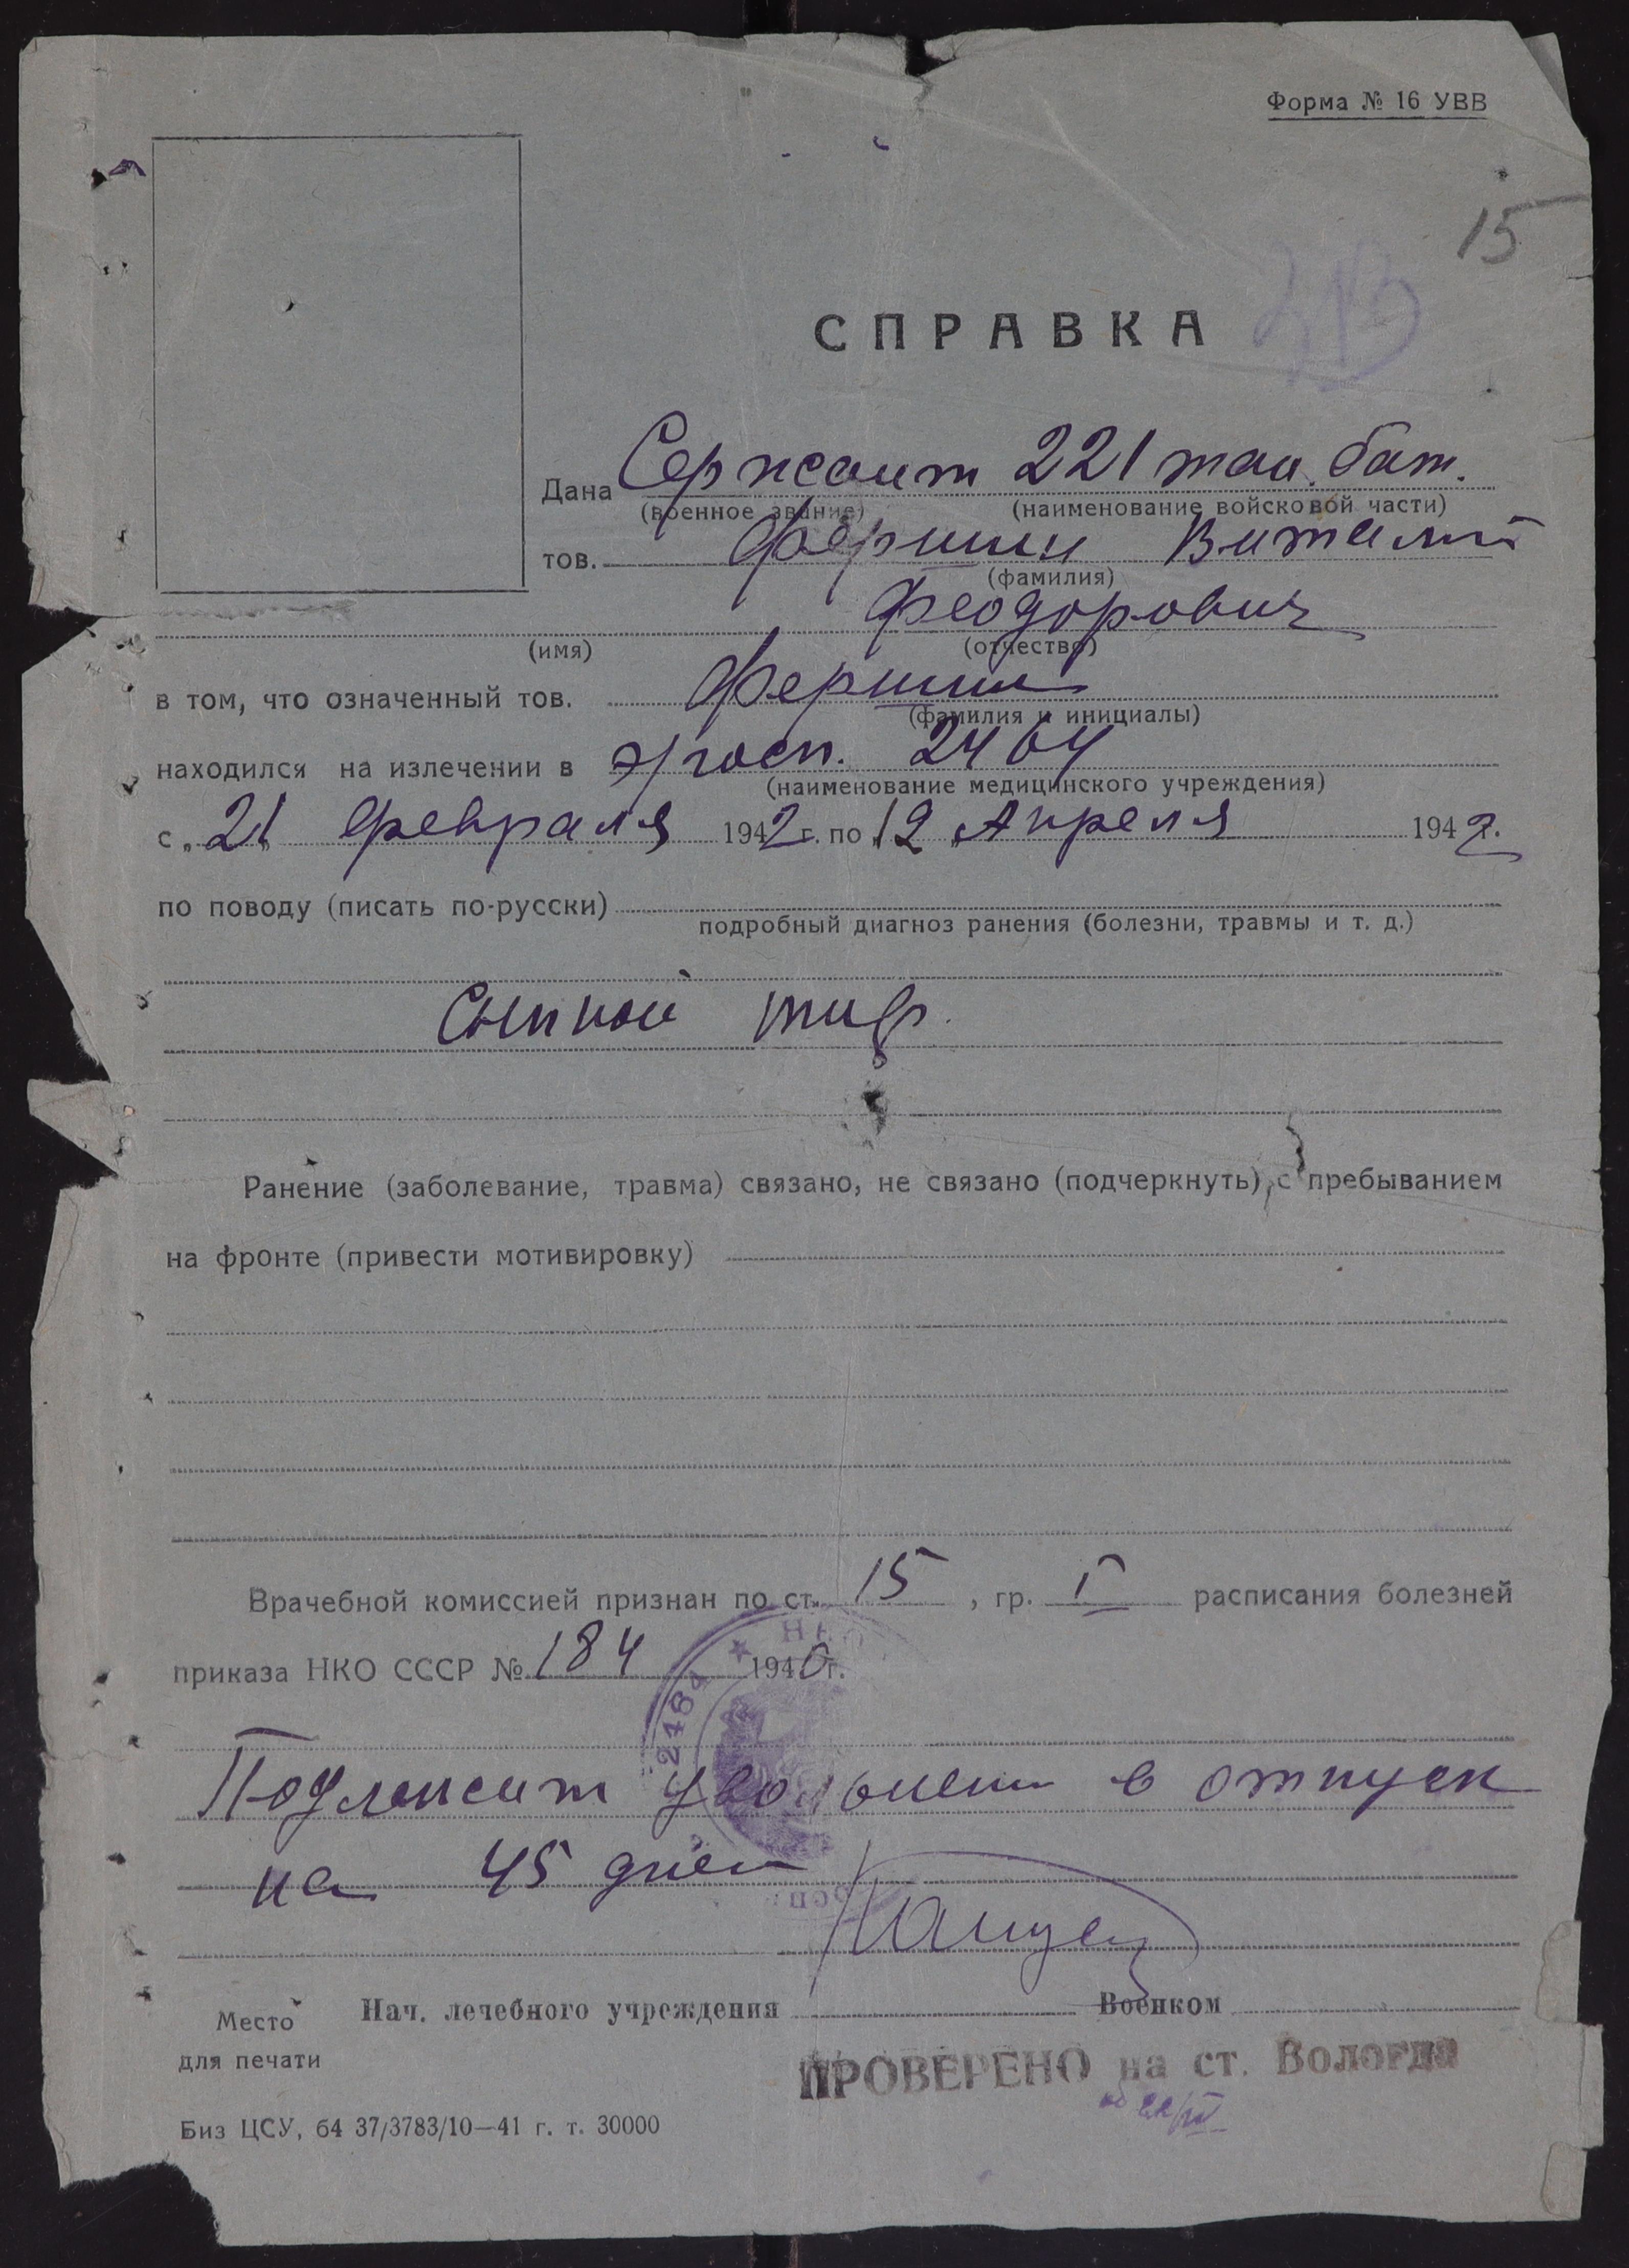 Форма № 16 УВВ
15
СПРАВКА
Дана Сержант 221 тан. бат.
(военное звание) (наименование войсковой части)
тов. Фершин Виталий
(фамилия)
Феодорович
(имя) (отчество)
в том, что означенный тов. Фершин
(фамилия и инициалы)
находился на излечении в э/госп. 2464
(наименование медицинского учреждения)
с „21 февраля 1942 г. по 12 Апреля 1942 г.
по поводу (писать по-русски)
подробный диагноз ранения (болезни, травмы и т. д.)
Сыпной тиф.
Ранение (заболевание, травма) связано, не связано (подчеркнуть), с пребыванием
на фронте (привести мотивировку)
Врачебной комиссией признан по ст. 15, гр. I расписания болезней
приказа НКО СССР № 184 1940 г.
НКО
2484
Подлежит увольнен в отпуск
на 45 дней
Нач. лечебного учреждения Военком
Место
для печати
ПРОВЕРЕНО на ст. Вологда
Биз ЦСУ, 64 37/3783/10—41 г. т. 30000